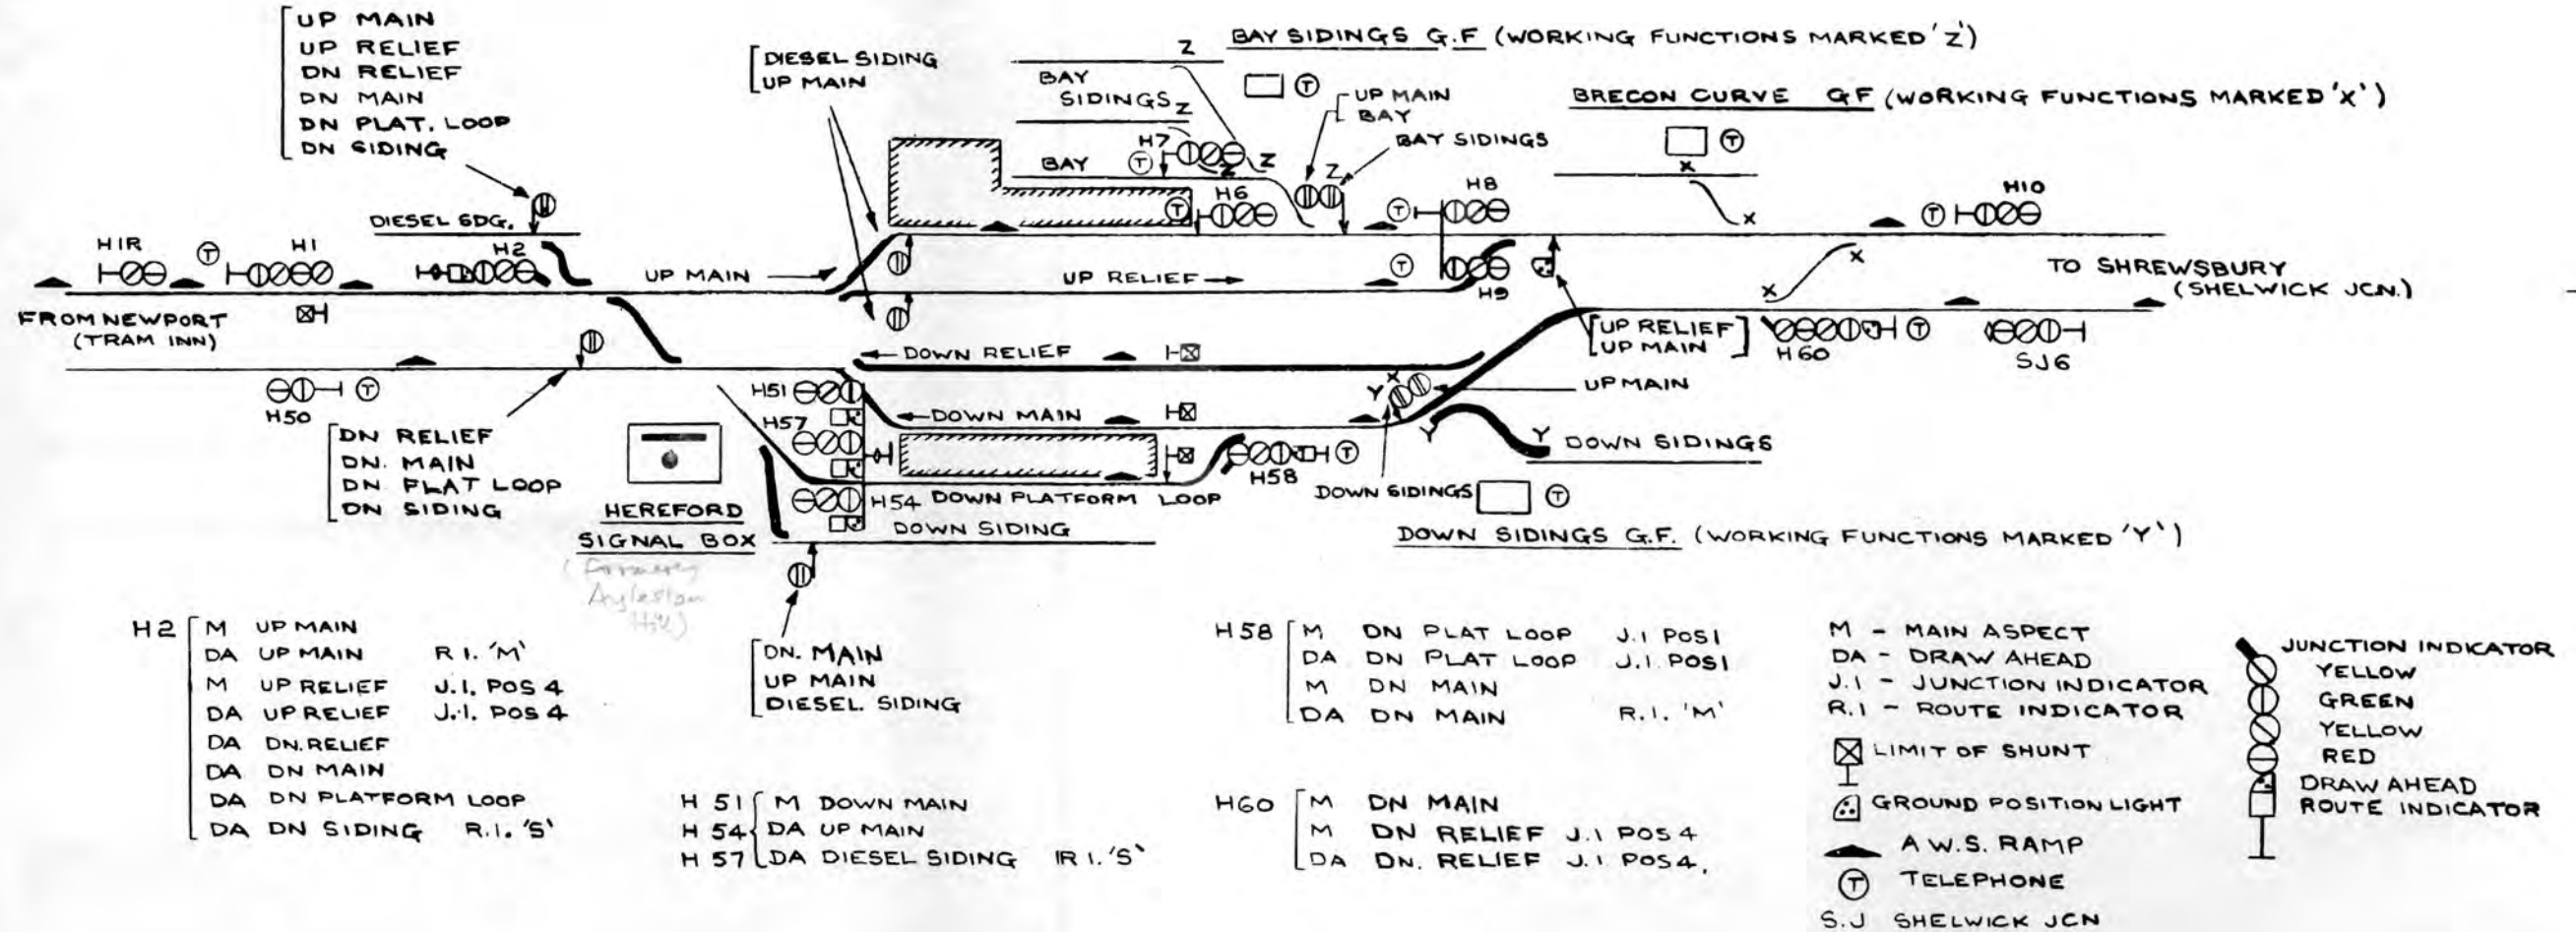 UP MAIN
UP RELIEF
DN RELIEF
DN MAIN
DN PLAT. LOOP
DN SIDING
DIESEL SIDING
UP MAIN
BAY SIDINGS G.F (WORKING FUNCTIONS MARKED 'Z')
Z
BAY
SIDINGS
Z
T
UP MAIN
BAY
BAY SIDINGS
BRECON CURVE GF (WORKING FUNCTIONS MARKED 'X')
T
X
X
H7
T
BAY
Z
Z
Z
T
H6
T
H8
T
H10
DIESEL SDG.
H1R
T
H1
H2
UP MAIN
UP RELIEF
T
H9
X
X
TO SHREWSBURY
(SHELWICK JCN.)
FROM NEWPORT
(TRAM INN)
DOWN RELIEF
UP RELIEF
UP MAIN
H60
T
SJ6
H50
T
H51
DOWN MAIN
Y
X
UP MAIN
H57
Y
Y
DOWN SIDINGS
DN RELIEF
DN. MAIN
DN PLAT LOOP
DN SIDING
HEREFORD
SIGNAL BOX
H54
DOWN PLATFORM LOOP
H58
T
DOWN SIDINGS
T
DOWN SIDING
DOWN SIDINGS G.F. (WORKING FUNCTIONS MARKED 'Y')
(Formerly
Hill)
DN. MAIN
UP MAIN
DIESEL. SIDING
H2
M UP MAIN
DA UP MAIN R I. 'M'
M UP RELIEF J.I. POS 4
DA UP RELIEF J.I. POS 4
DA DN. RELIEF
DA DN MAIN
DA DN PLATFORM LOOP
DA DN SIDING R.I. 'S'
H 51 M DOWN MAIN
H 54 DA UP MAIN
H 57 DA DIESEL SIDING R I. 'S'
H58
M DN PLAT LOOP J.I POS1
DA DN PLAT LOOP J.I. POS1
M DN MAIN
DA DN MAIN R.I. 'M'
H60
M DN MAIN
M DN RELIEF J.I POS 4
DA DN. RELIEF J.I. POS 4.
M - MAIN ASPECT
DA - DRAW AHEAD
J.I - JUNCTION INDICATOR
R.I - ROUTE INDICATOR
LIMIT OF SHUNT
GROUND POSITION LIGHT
A W.S. RAMP
T TELEPHONE
S.J SHELWICK JCN
JUNCTION INDICATOR
YELLOW
GREEN
YELLOW
RED
DRAW AHEAD
ROUTE INDICATOR